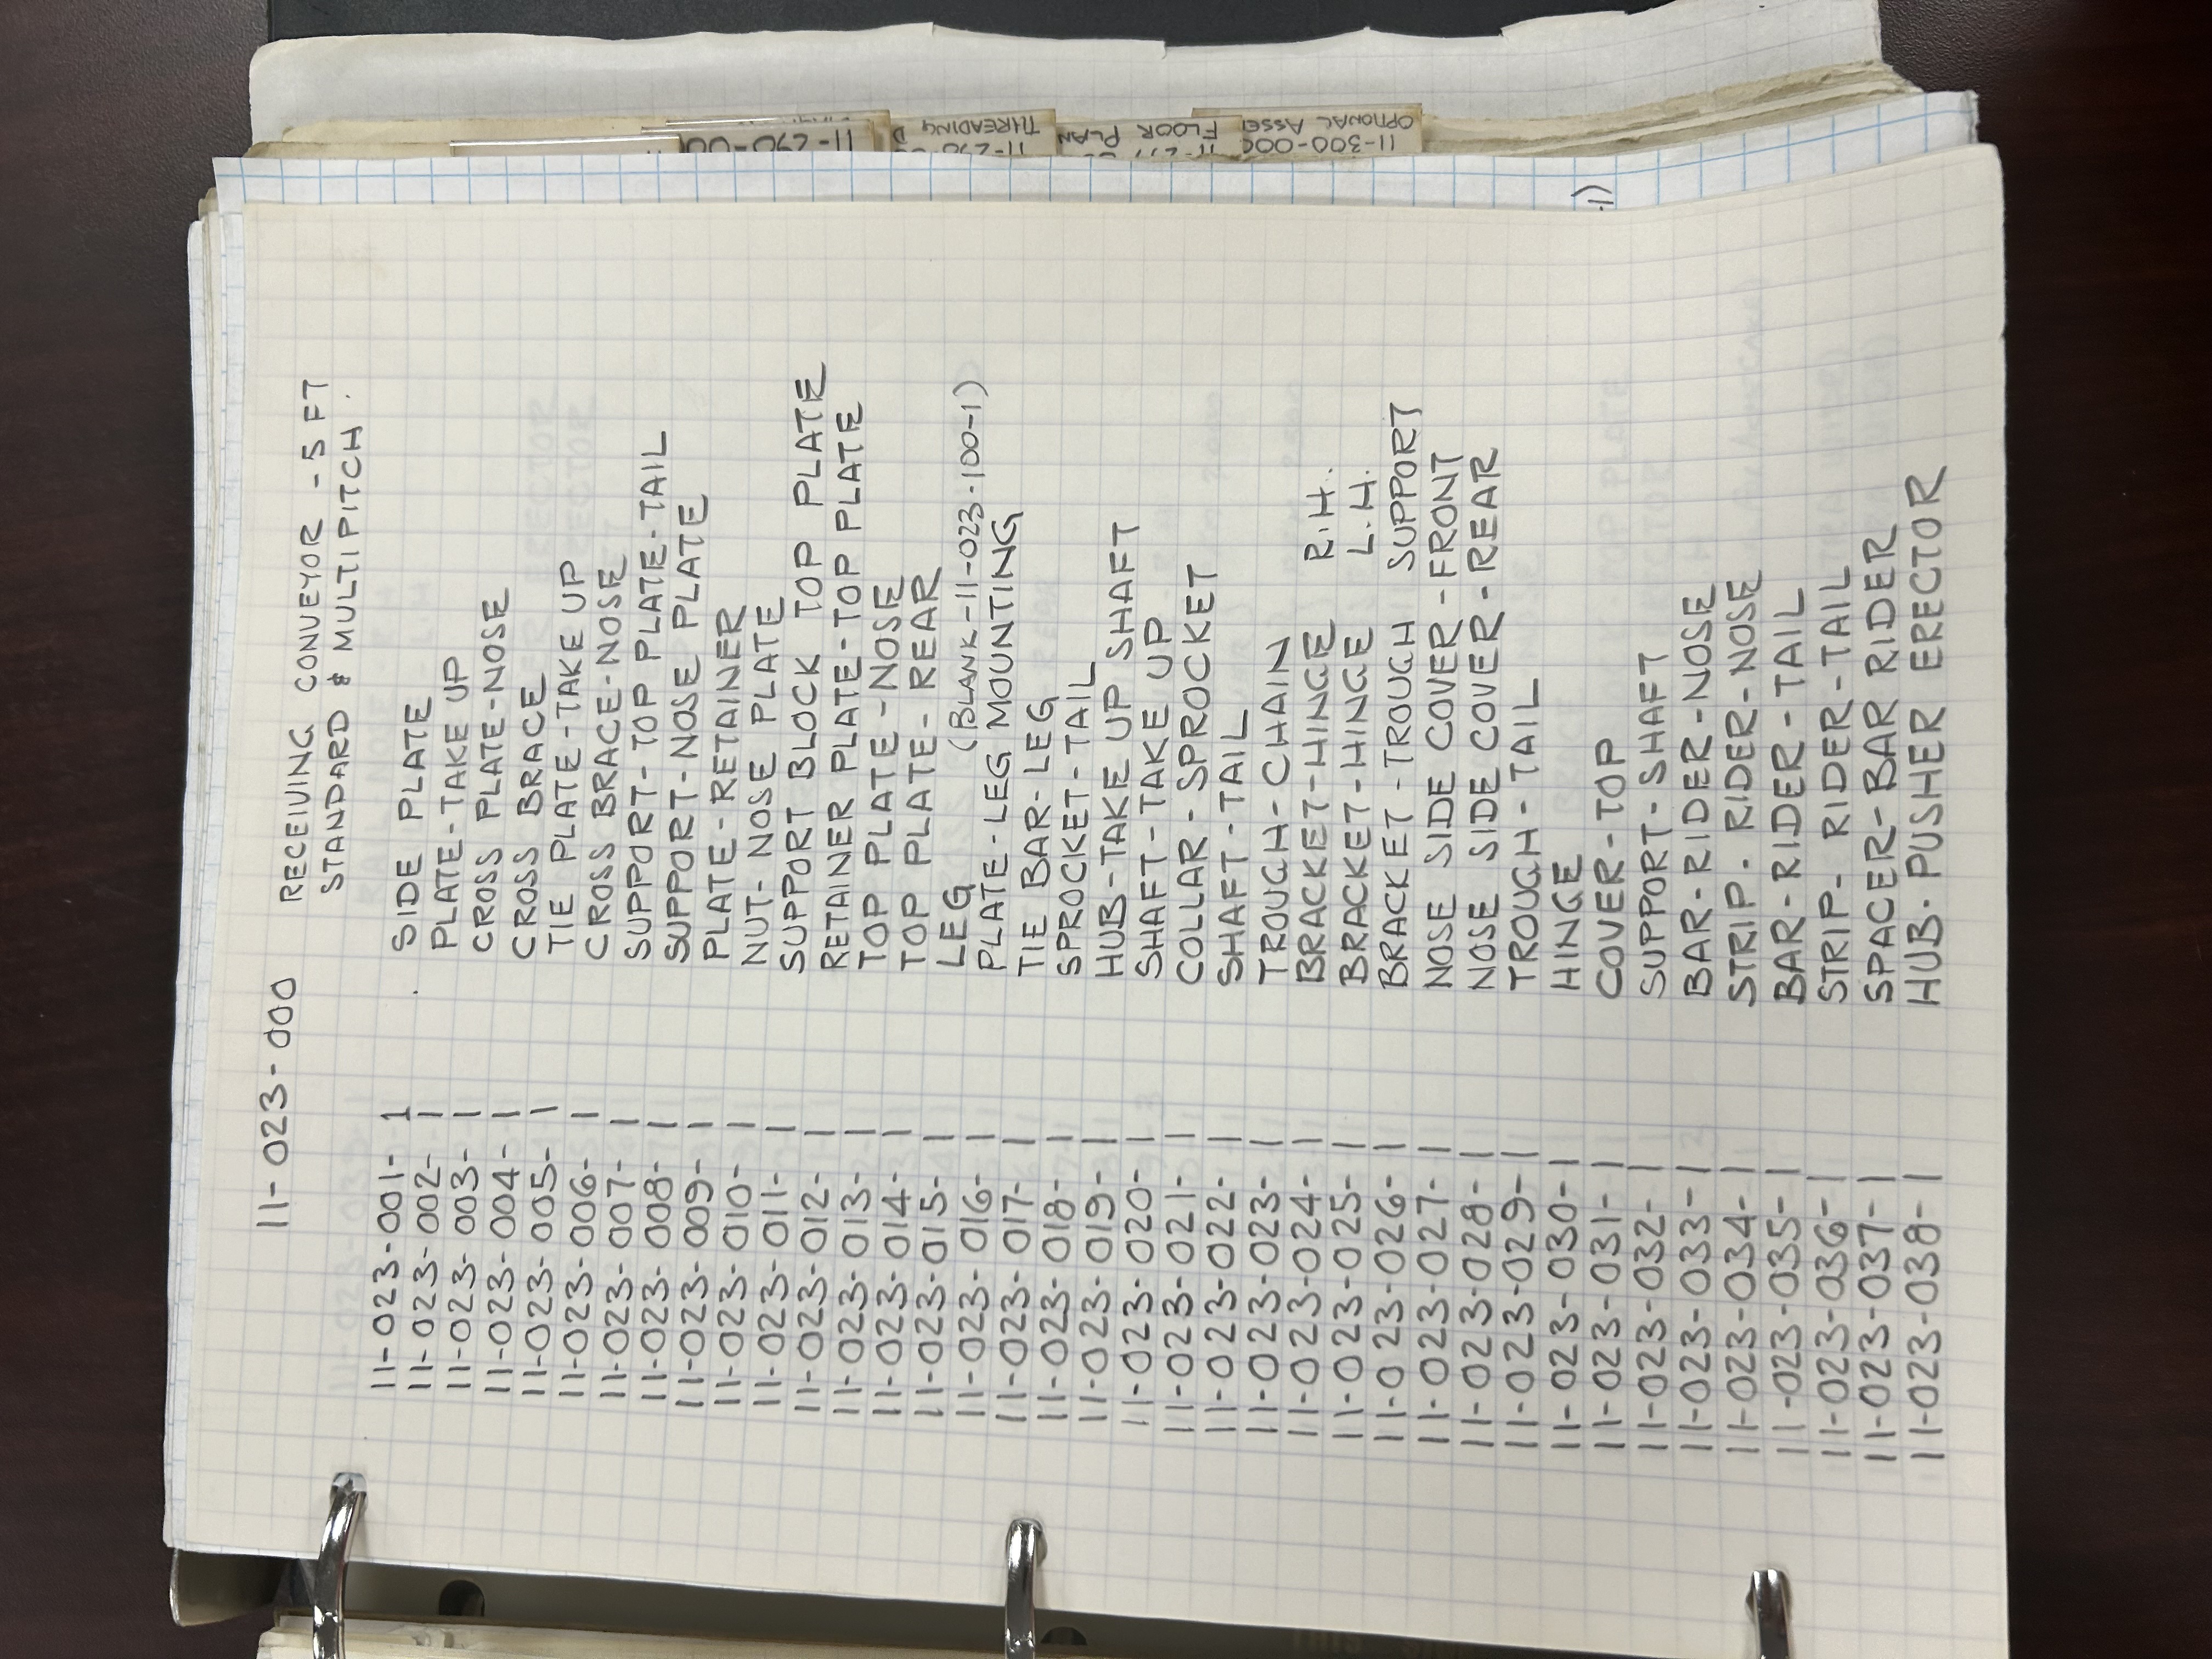 11-023-000 RECEIVING CONVEYOR - 5 FT
STANDARD & MULTIPITCH
11-023-001-1 SIDE PLATE
11-023-002-1 PLATE-TAKE UP
11-023-003-1 CROSS PLATE-NOSE
11-023-004-1 CROSS BRACE
11-023-005-1 TIE PLATE-TAKE UP
11-023-006-1 CROSS BRACE-NOSE
11-023-007-1 SUPPORT-TOP PLATE-TAIL
11-023-008-1 SUPPORT-NOSE PLATE
11-023-009-1 PLATE-RETAINER
11-023-010-1 NUT-NOSE PLATE
11-023-011-1 SUPPORT BLOCK TOP PLATE
11-023-012-1 RETAINER PLATE-TOP PLATE
11-023-013-1 TOP PLATE-NOSE
11-023-014-1 TOP PLATE-REAR
11-023-015-1 LEG (BLANK-11-023-100-1)
11-023-016-1 PLATE-LEG MOUNTING
11-023-017-1 TIE BAR-LEG
11-023-018-1 SPROCKET-TAIL
11-023-019-1 HUB-TAKE UP SHAFT
11-023-020-1 SHAFT-TAKE UP
11-023-021-1 COLLAR-SPROCKET
11-023-022-1 SHAFT-TAIL
11-023-023-1 TROUGH-CHAIN
11-023-024-1 BRACKET-HINGE R.H.
11-023-025-1 BRACKET-HINGE L.H.
11-023-026-1 BRACKET-TROUGH SUPPORT
11-023-027-1 NOSE SIDE COVER-FRONT
11-023-028-1 NOSE SIDE COVER-REAR
11-023-029-1 TROUGH-TAIL
11-023-030-1 HINGE
11-023-031-1 COVER-TOP
11-023-032-1 SUPPORT-SHAFT
11-023-033-1 BAR-RIDER-NOSE
11-023-034-1 STRIP-RIDER-NOSE
11-023-035-1 BAR-RIDER-TAIL
11-023-036-1 STRIP-RIDER-TAIL
11-023-037-1 SPACER-BAR RIDER
11-023-038-1 HUB-PUSHER ERECTOR
-1)
THREADING
FLOOR PLAN
11-300-000
OPTIONAL